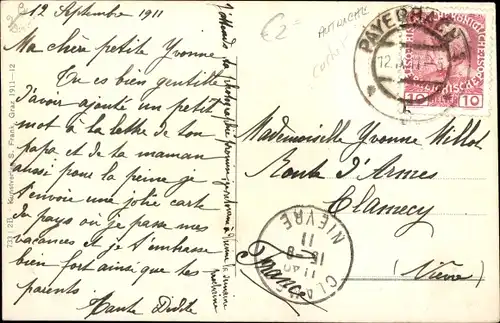 12 Septembre 1911
Ma chère petite Yvonne
Tu es bien gentille
d'avoir ajouté un petit
mot à la lettre de ton
papa et de ta maman
aussi pour la peine je
t'envoie une jolie carte
du pays où je passe mes
vacances et je t'embrasse
bien fort ainsi que tes
parents.
Tante
J'attends la photographie promise
la semaine
prochaine
733 | 2B Kunstverlag S. Frank, Graz 1911-12
€ 2
PAYERBACH
12
10 10
Mademoiselle Yvonne Millot
Route d'Armes
Clamecy
(Nièvre)
France
CLAMECY
NIEVRE